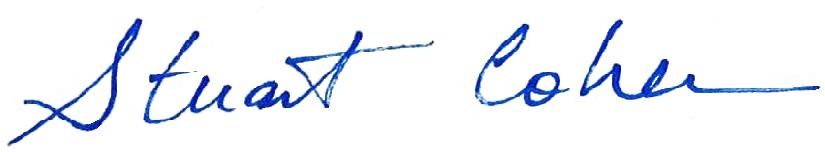 Stuart Cohen